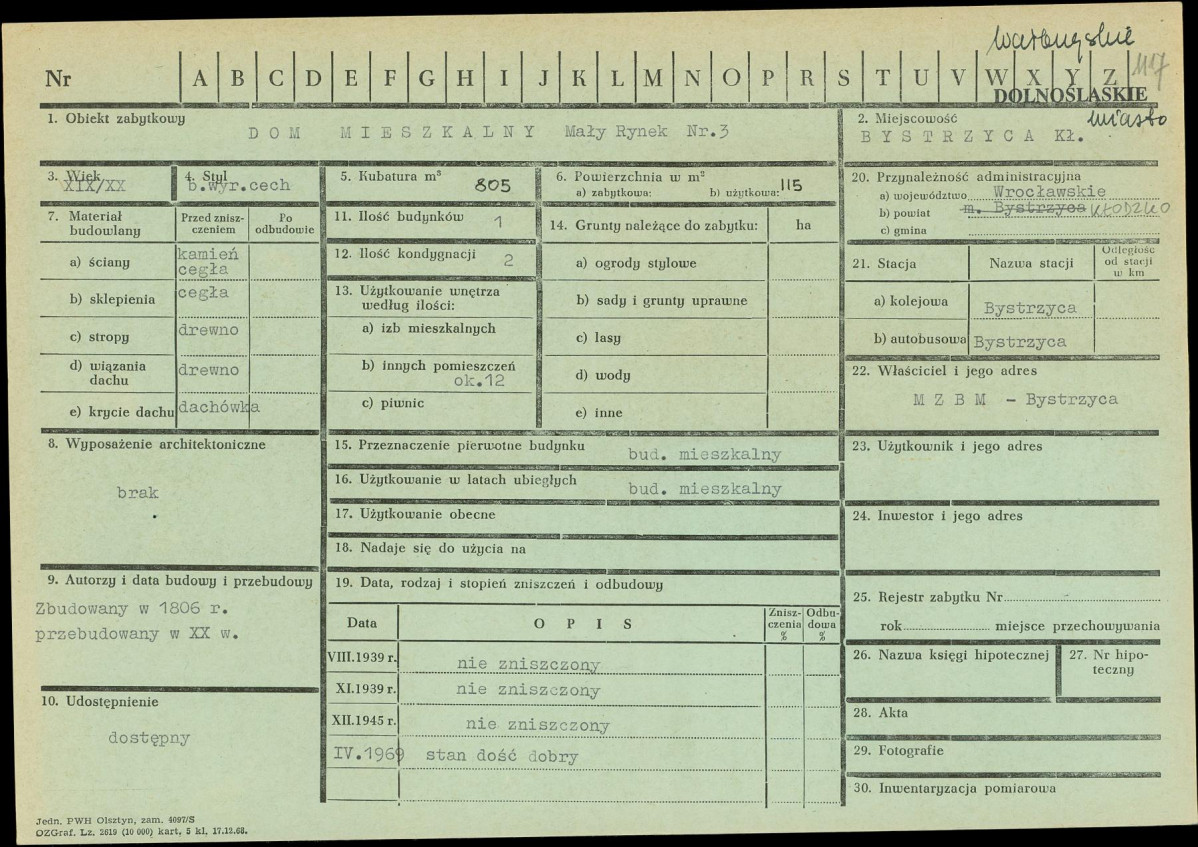 wałbrzyskie
Nr A B C D E F G H I J K L M N O P R S T U V W X Y Z 117
DOLNOŚLĄSKIE
1. Obiekt zabytkowy
DOM MIESZKALNY Mały Rynek Nr.3
2. Miejscowość miasto
BYSTRZYCA Kł.
3. Wiek
XIX/XX
4. Styl
b.wyr.cech
5. Kubatura m³ 805
6. Powierzchnia w m²
a) zabytkowa: b) użytkowa: 115
20. Przynależność administracyjna
a) województwo Wrocławskie
b) powiat m. Bystrzyca KŁODZKO
c) gmina
7. Materiał budowlany
Przed zniszczeniem
Po odbudowie
a) ściany kamień
cegła
b) sklepienia cegła
c) stropy drewno
d) wiązania dachu drewno
e) krycie dachu dachówka
11. Ilość budynków 1
12. Ilość kondygnacji 2
13. Użytkowanie wnętrza
według ilości:
a) izb mieszkalnych
b) innych pomieszczeń
ok.12
c) piwnic
14. Grunty należące do zabytku: ha
a) ogrody stylowe
b) sady i grunty uprawne
c) lasy
d) wody
e) inne
21. Stacja Nazwa stacji Odległość od stacji w km
a) kolejowa Bystrzyca
b) autobusowa Bystrzyca
22. Właściciel i jego adres
M Z B M - Bystrzyca
8. Wyposażenie architektoniczne
brak
15. Przeznaczenie pierwotne budynku
bud. mieszkalny
16. Użytkowanie w latach ubiegłych
bud. mieszkalny
17. Użytkowanie obecne
18. Nadaje się do użycia na
23. Użytkownik i jego adres
24. Inwestor i jego adres
9. Autorzy i data budowy i przebudowy
Zbudowany w 1806 r.
przebudowany w XX w.
19. Data, rodzaj i stopień zniszczeń i odbudowy
Data OPIS Zniszczenia % Odbudowa %
VIII.1939 r. nie zniszczony
XI.1939 r. nie zniszczony
XII.1945 r. nie zniszczony
IV.1969 stan dość dobry
25. Rejestr zabytku Nr
rok miejsce przechowywania
26. Nazwa księgi hipotecznej
27. Nr hipoteczny
10. Udostępnienie
dostępny
28. Akta
29. Fotografie
30. Inwentaryzacja pomiarowa
Jedn. PWH Olsztyn, zam. 4097/S
OZGraf. Lz. 2619 (10 000) kart, 5 kl, 17.12.68.